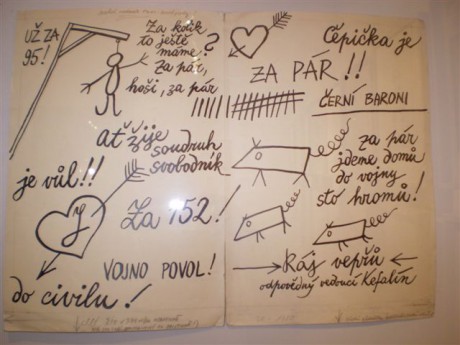 UŽ ZA
95!
Za kolik
to ještě
máme?
za pár,
hoši, za pár
ať žije
soudruh
svobodník
je vůl!!!
Za 152!
VOJNO POVOL!
do civilu!
Čepička je
ZA PÁR!!
ČERNÍ BARONI
za pár
jdeme domů
do vojny
sto hromů!
Ráj vepřů
odpovědný vedoucí Kefalín